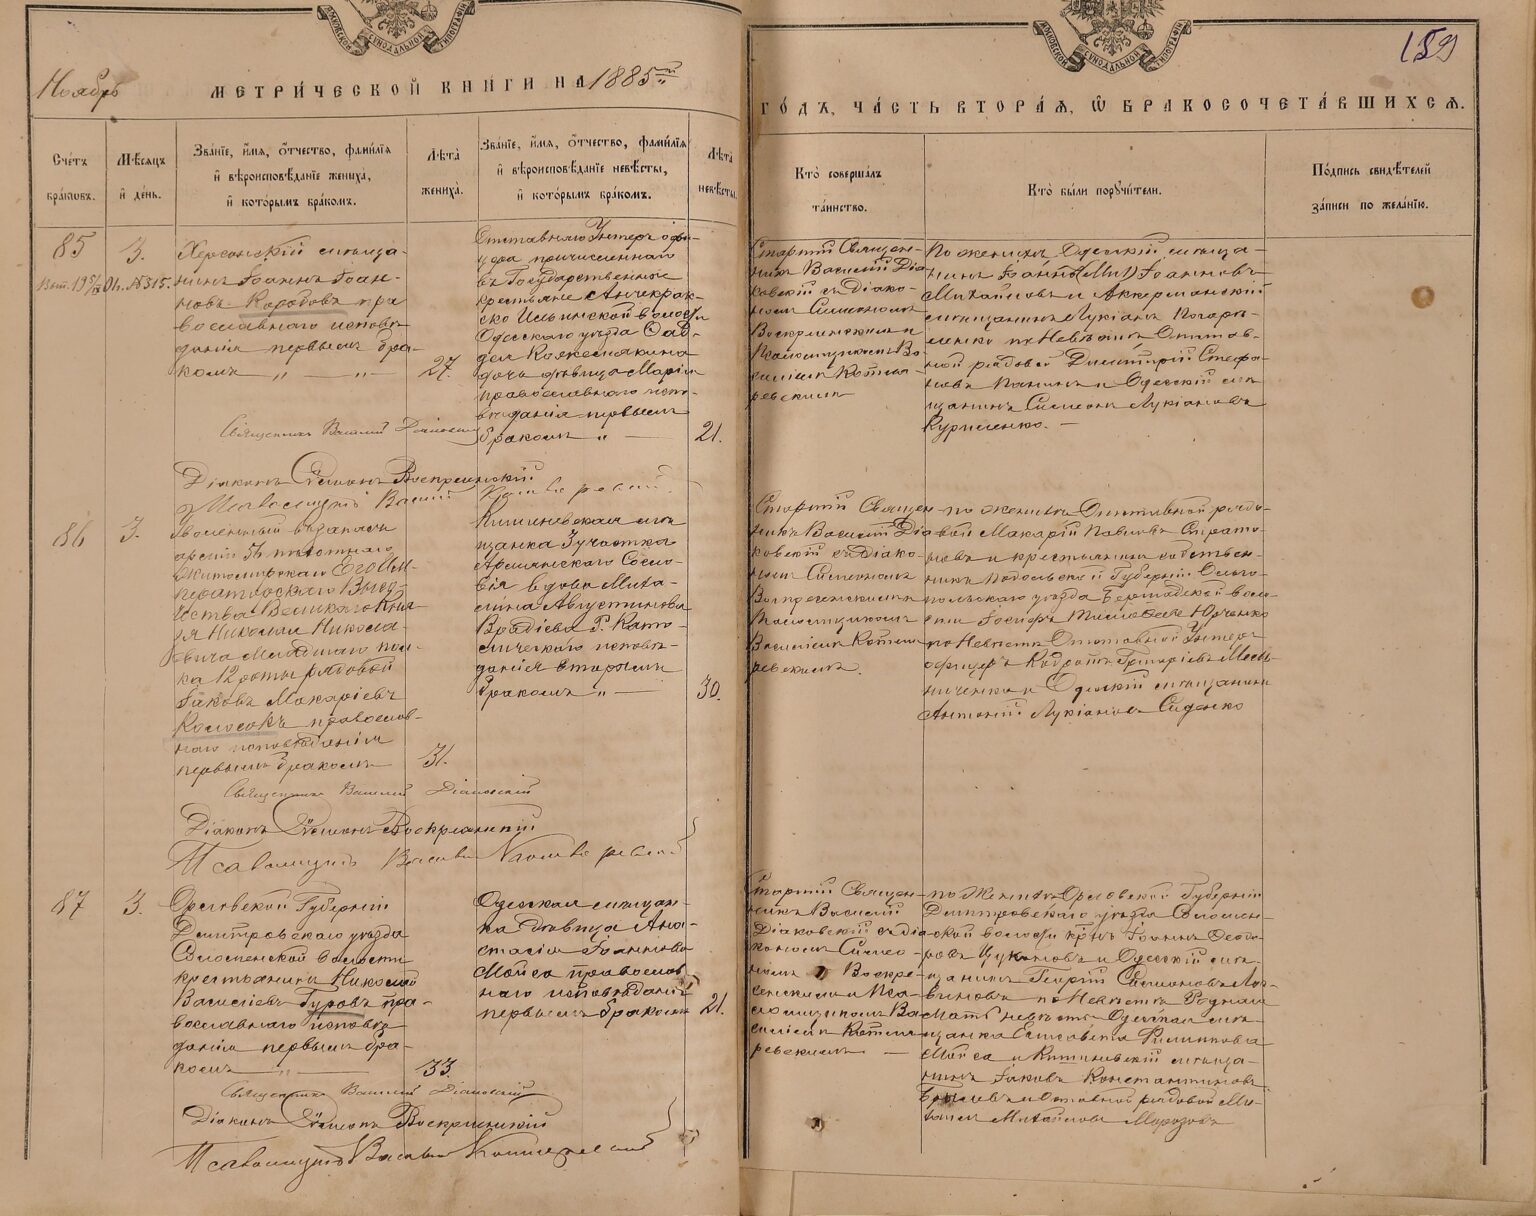 МОСКОВСКОЙ СѴНОДАЛЬНОЙ ТИПОГРАФІИ
МОСКОВСКОЙ СѴНОДАЛЬНОЙ ТИПОГРАФІИ
159
Ноябрь
МЕТРИ́ЧЕСКОЙ КНИ́ГИ НА 1885й
ГО́ДЪ, ЧА́СТЬ ВТОРА́Я, Ѡ҆ БРАКОСОЧЕТА́ВШИХСЯ.
Сче́тъ
бра́ковъ.
Мѣ́сяцъ
и҆ де́нь.
Зва́нїе, и҆́мя, ѻ҆́тчество, фами́лїя
и҆ вѣроисповѣ́данїе жениха̀,
и҆ кото́рымъ бра́комъ.
Лѣ́та
жениха̀.
Зва́нїе, и҆́мя, ѻ҆́тчество, фами́лїя
и҆ вѣроисповѣ́данїе невѣ́сты,
и҆ кото́рымъ бра́комъ.
Лѣ́та
невѣ́сты.
Кто̀ соверша́лъ
та́инство.
Кто̀ бы́ли порꙋчи́тели.
По́дпись свидѣ́телей
за́писи по жела́нїю.
85
3.
№ 315.
Херсонскій мѣща-
нинъ Іоаннъ Іоан-
новъ Коробовъ пра
вославнаго исповѣ
данія первымъ бра-
комъ „ „ —
27.
Отставнаго Унтеръ офи-
цера причисленнаго
въ Государственные
крестьяне Анчекрак-
ско Ильинской волости
Одесскаго уѣзда
Кожемякина
дочь дѣвица Марія
православнаго испо-
вѣданія первымъ
бракомъ „ —
21.
Старшій Священ-
никъ Василій Діа
ковскій съ Діако-
номъ Симеономъ
Воскресенскимъ и
Псаломщикомъ Ва-
силіемъ Котля-
ревскимъ
По женихѣ Одесскій мѣща-
нинъ Іоаннъ Іоанновъ
Михайловъ и Аккерманскій
мѣщанинъ Лукіанъ Погорѣ-
ленко по невѣстѣ Отстав-
ной рядовой Димитрій Стефа-
новъ Панинъ и Одесскій мѣ
щанинъ Симеонъ Лукіановъ
Куриленко. —
Священникъ Василій Діаковскій
Діаконъ Сѵмеонъ Воскресенскій
Псаломщикъ Василій Котляревскій
86
3.
Уволенный въ запасъ
арміи 56 пѣхотнаго
Житомирскаго Его Им-
ператорскаго Высо-
чества Великаго Кня-
зя Николая Никола-
евича Младшаго пол-
ка 12 роты рядовой
Іаковъ Макаріевъ
Колосокъ православ-
наго исповѣданія
первымъ бракомъ
31.
Кишиневская мѣ
щанка 3 участка
Армянскаго Сосло-
вія вдова Миха-
лина Августинова
Врадіева Р. Като-
лическаго исповѣ-
данія вторымъ
бракомъ „ —
30.
Старшій Священ-
никъ Василій Діа
ковскій съ Діако-
номъ Симеономъ
Воскресенскимъ
Псаломщикомъ
Василіемъ Котля
ревскимъ.
по женихѣ Отставной рядо-
вой Макарій Павловъ
и крестьянинъ собствен-
никъ Подольской Губерніи Ольго-
польскаго уѣзда Бершадской воло-
сти Іосифъ Юрченко
по невѣстѣ Отставной Унтеръ
офицеръ Кодратъ Григоріевъ Мель
ниченко и Одесскій мѣщанинъ
Антоній Лукіановъ Сиденко
Священникъ Василій Діаковскій
Діаконъ Сѵмеонъ Воскресенскій
Псаломщикъ Василій Котляревскій
87
3.
Орловской Губерніи
Дмитровскаго уѣзда
волости
крестьянинъ Николай
Василіевъ Гуровъ пра-
вославнаго исповѣ
данія первымъ бра-
комъ „ —
33.
Одесская мѣщан-
ка дѣвица Ана-
стасія Іоаннова
Мойса православ
наго исповѣданія
первымъ бракомъ
21.
Старшій Священ-
никъ Василій
Діаковскій съ Діа
кономъ Симео-
номъ Воскре-
сенскимъ и Пса-
ломщикомъ Ва
силіемъ Котля-
ревскимъ —
по Женихѣ Орловской Губерніи
Дмитровскаго уѣзда
ской волости кр-нъ Іоаннъ Ѳеодо-
ровъ Цукановъ и Одесскій мѣ-
щанинъ Георгій Симеоновъ
по невѣстѣ Родная
мать невѣсты Одесская мѣ-
щанка Елисавета Филиппова
Мойса и Кишиневскій мѣща-
нинъ Іаковъ Константиновъ
и Отставной рядовой Ми-
хаилъ Михайловъ Морозовъ
Священникъ Василій Діаковскій
Діаконъ Сѵмеонъ Воскресенскій
Псаломщикъ Василій Котляревскій